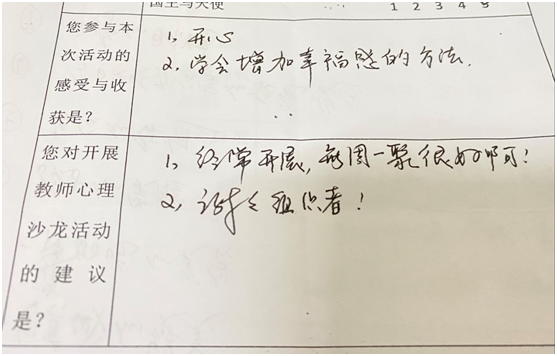 国王与天使
1 2 3 4 5
您参与本
次活动的
感受与收
获是?
1、开心
2、学会增加幸福感的方法.
您对开展
教师心理
沙龙活动
的建议
是?
1、经常开展,每周一聚很好啊!
2、谢谢组织者!